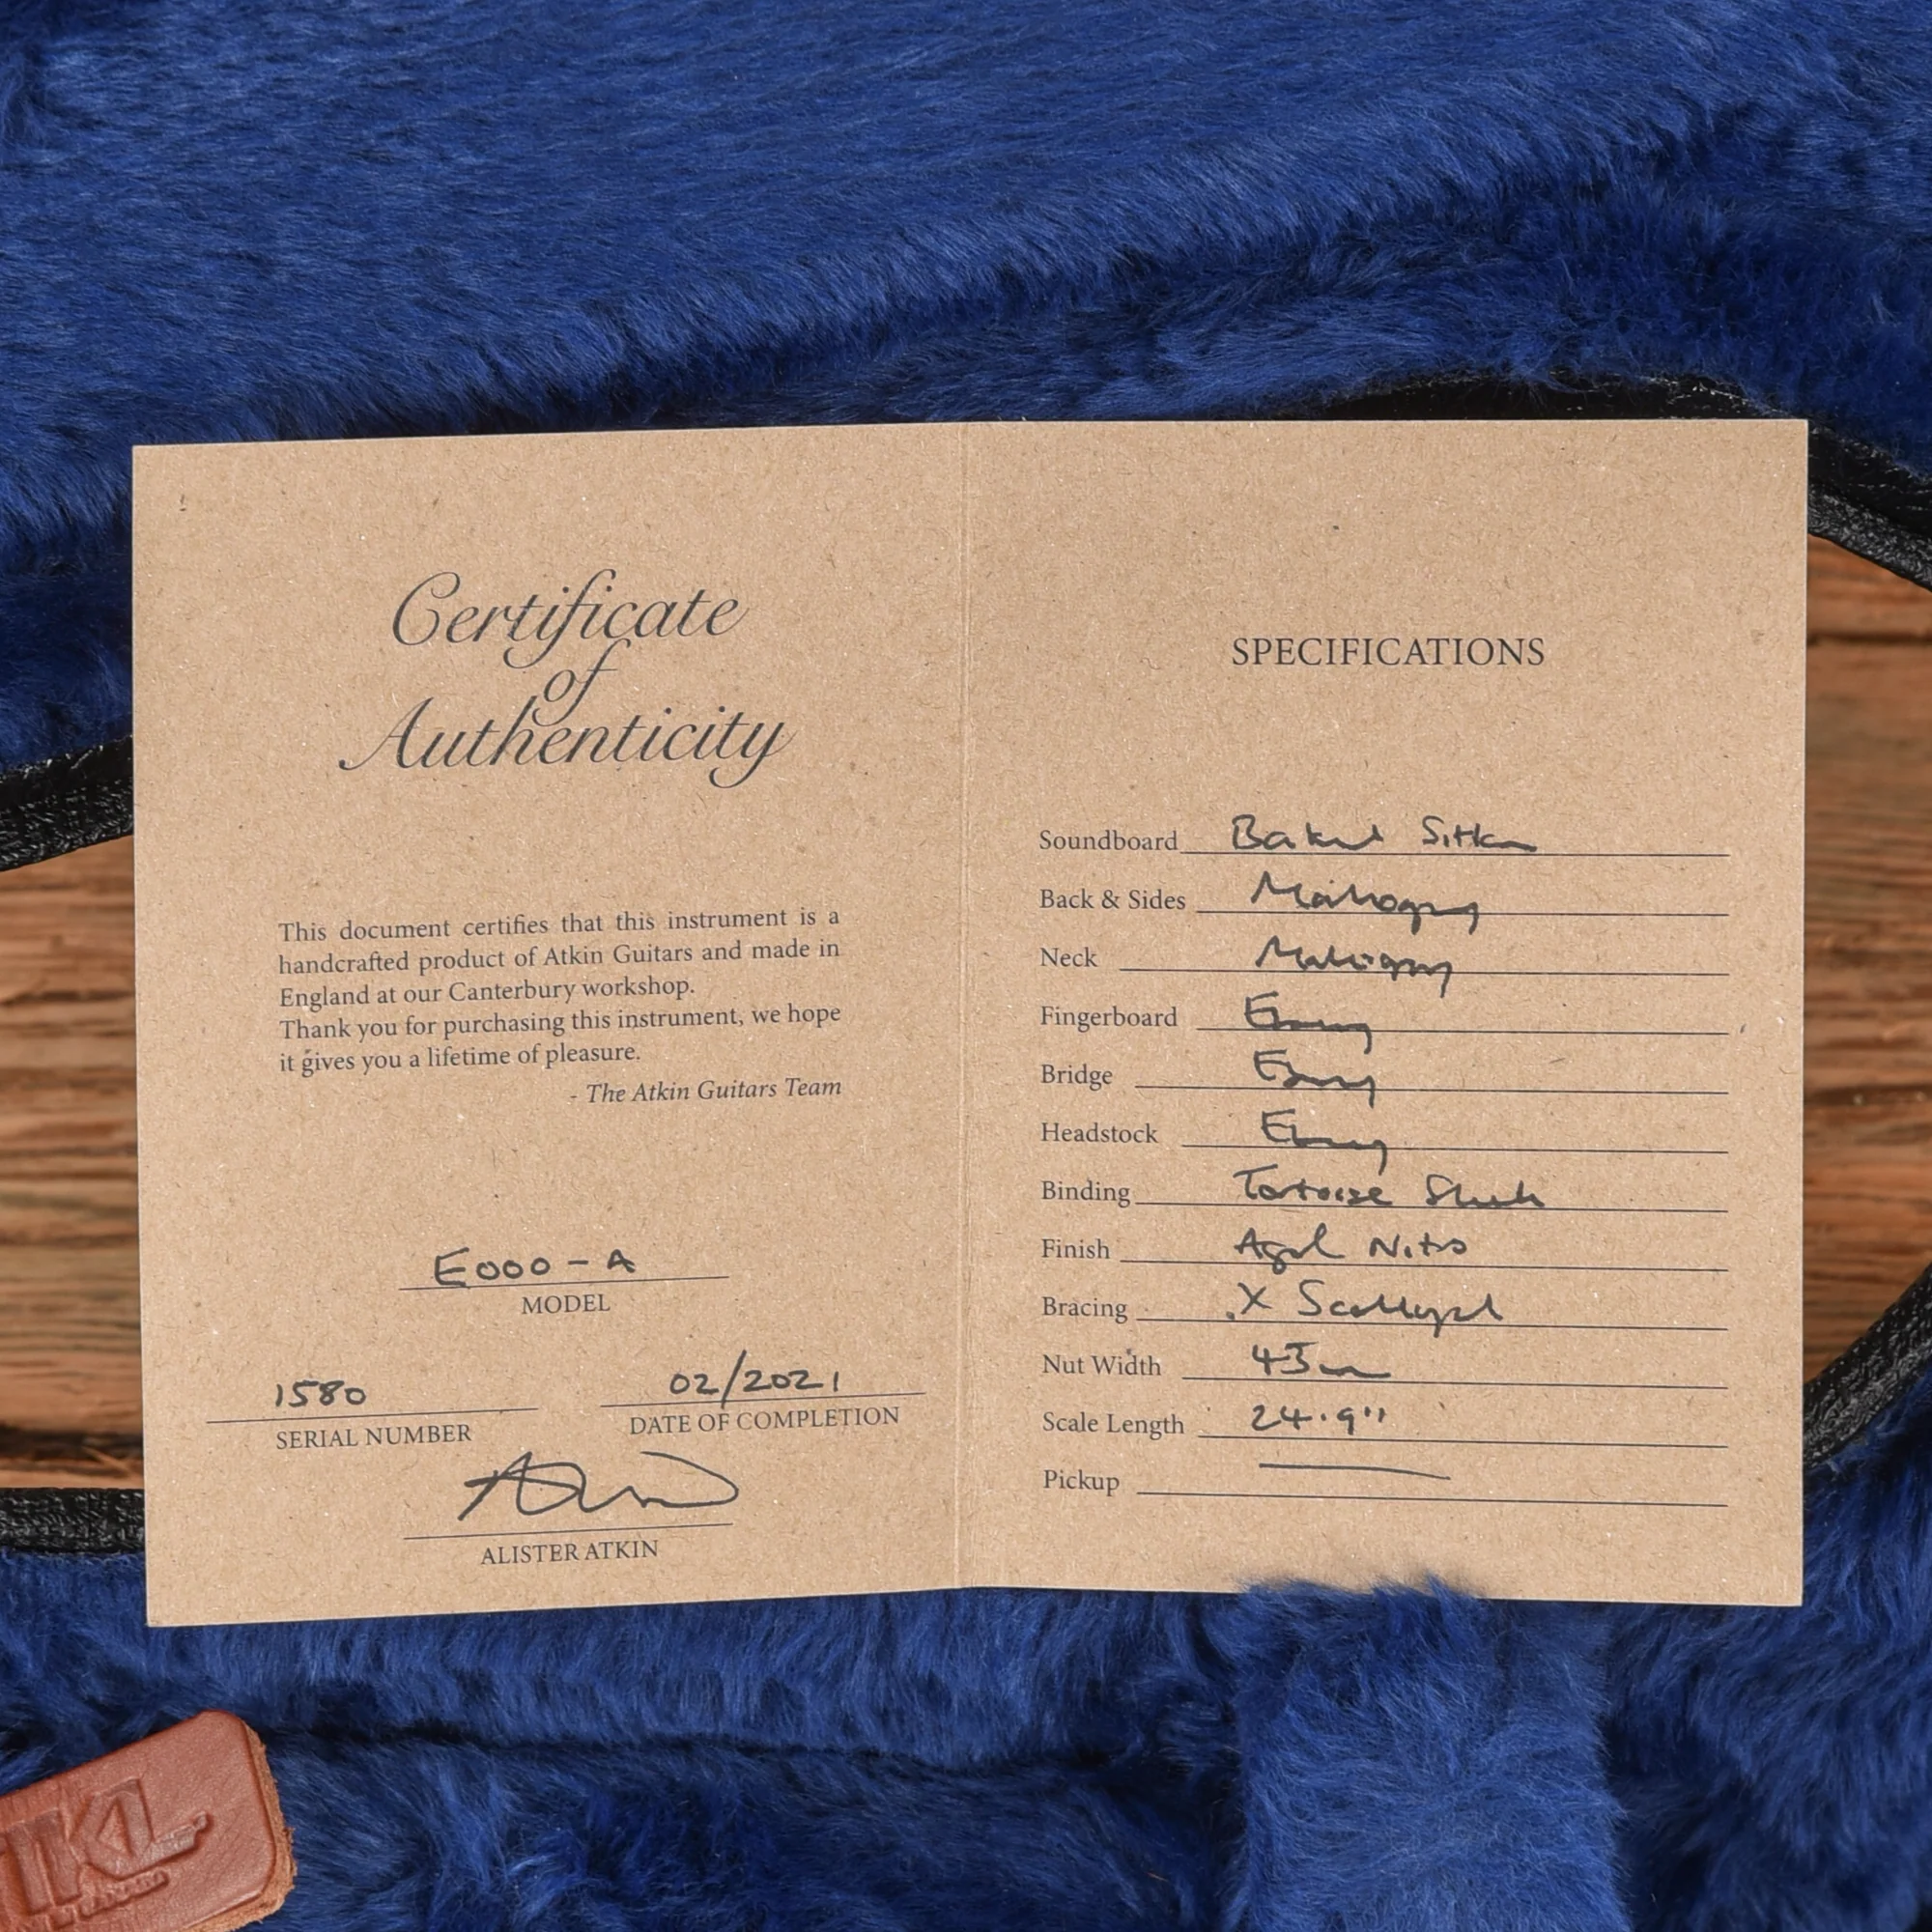 Certificate
of
Authenticity
This document certifies that this instrument is a
handcrafted product of Atkin Guitars and made in
England at our Canterbury workshop.
Thank you for purchasing this instrument, we hope
it gives you a lifetime of pleasure.
- The Atkin Guitars Team
E000 - A
MODEL
1580
SERIAL NUMBER
02/2021
DATE OF COMPLETION
ALISTER ATKIN
SPECIFICATIONS
Soundboard Baked Sitka
Back & Sides Mahogany
Neck Mahogany
Fingerboard Ebony
Bridge Ebony
Headstock Ebony
Binding Tortoise Shell
Finish Aged Nitro
Bracing X Scalloped
Nut Width
Scale Length 24.9"
Pickup